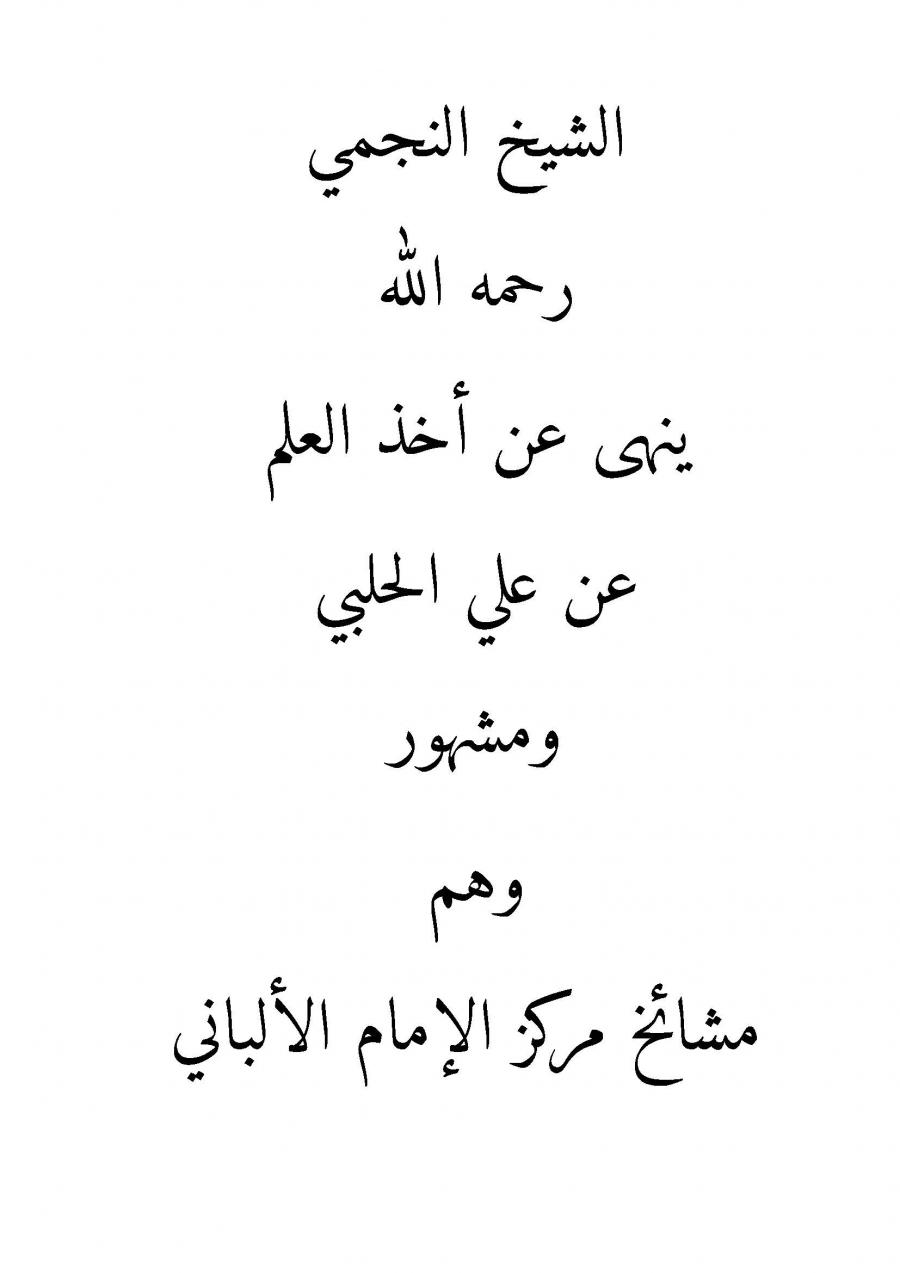 الشيخ النجمي
رحمه الله
ينهى عن أخذ العلم
عن علي الحلبي
ومشهور
وهم
مشائخ مركز الإمام الألباني